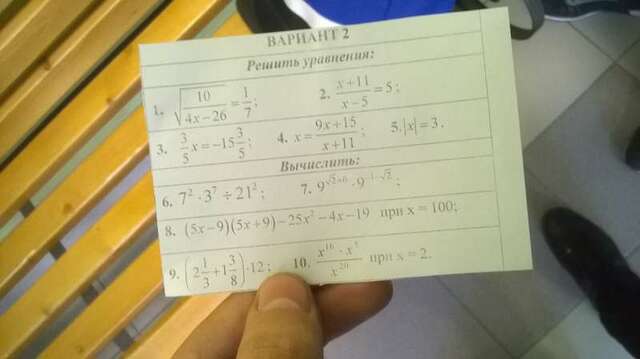 ВАРИАНТ 2
Решить уравнения:
1. √(10/(4x−26)) = 1/7; 2. (x+11)/(x−5) = 5;
3. 3/5 x = −15 3/5; 4. x = (9x+15)/(x+11); 5. |x| = 3.
Вычислить:
6. 7² · 3⁷ ÷ 21²; 7. 9^(√2+6) · 9^(−1−√2);
8. (5x−9)(5x+9)−25x²−4x−19 при x = 100;
9. (2 1/3 + 1 3/8) · 12; 10. (x¹⁶ · x⁷)/x²⁰ при x = 2.